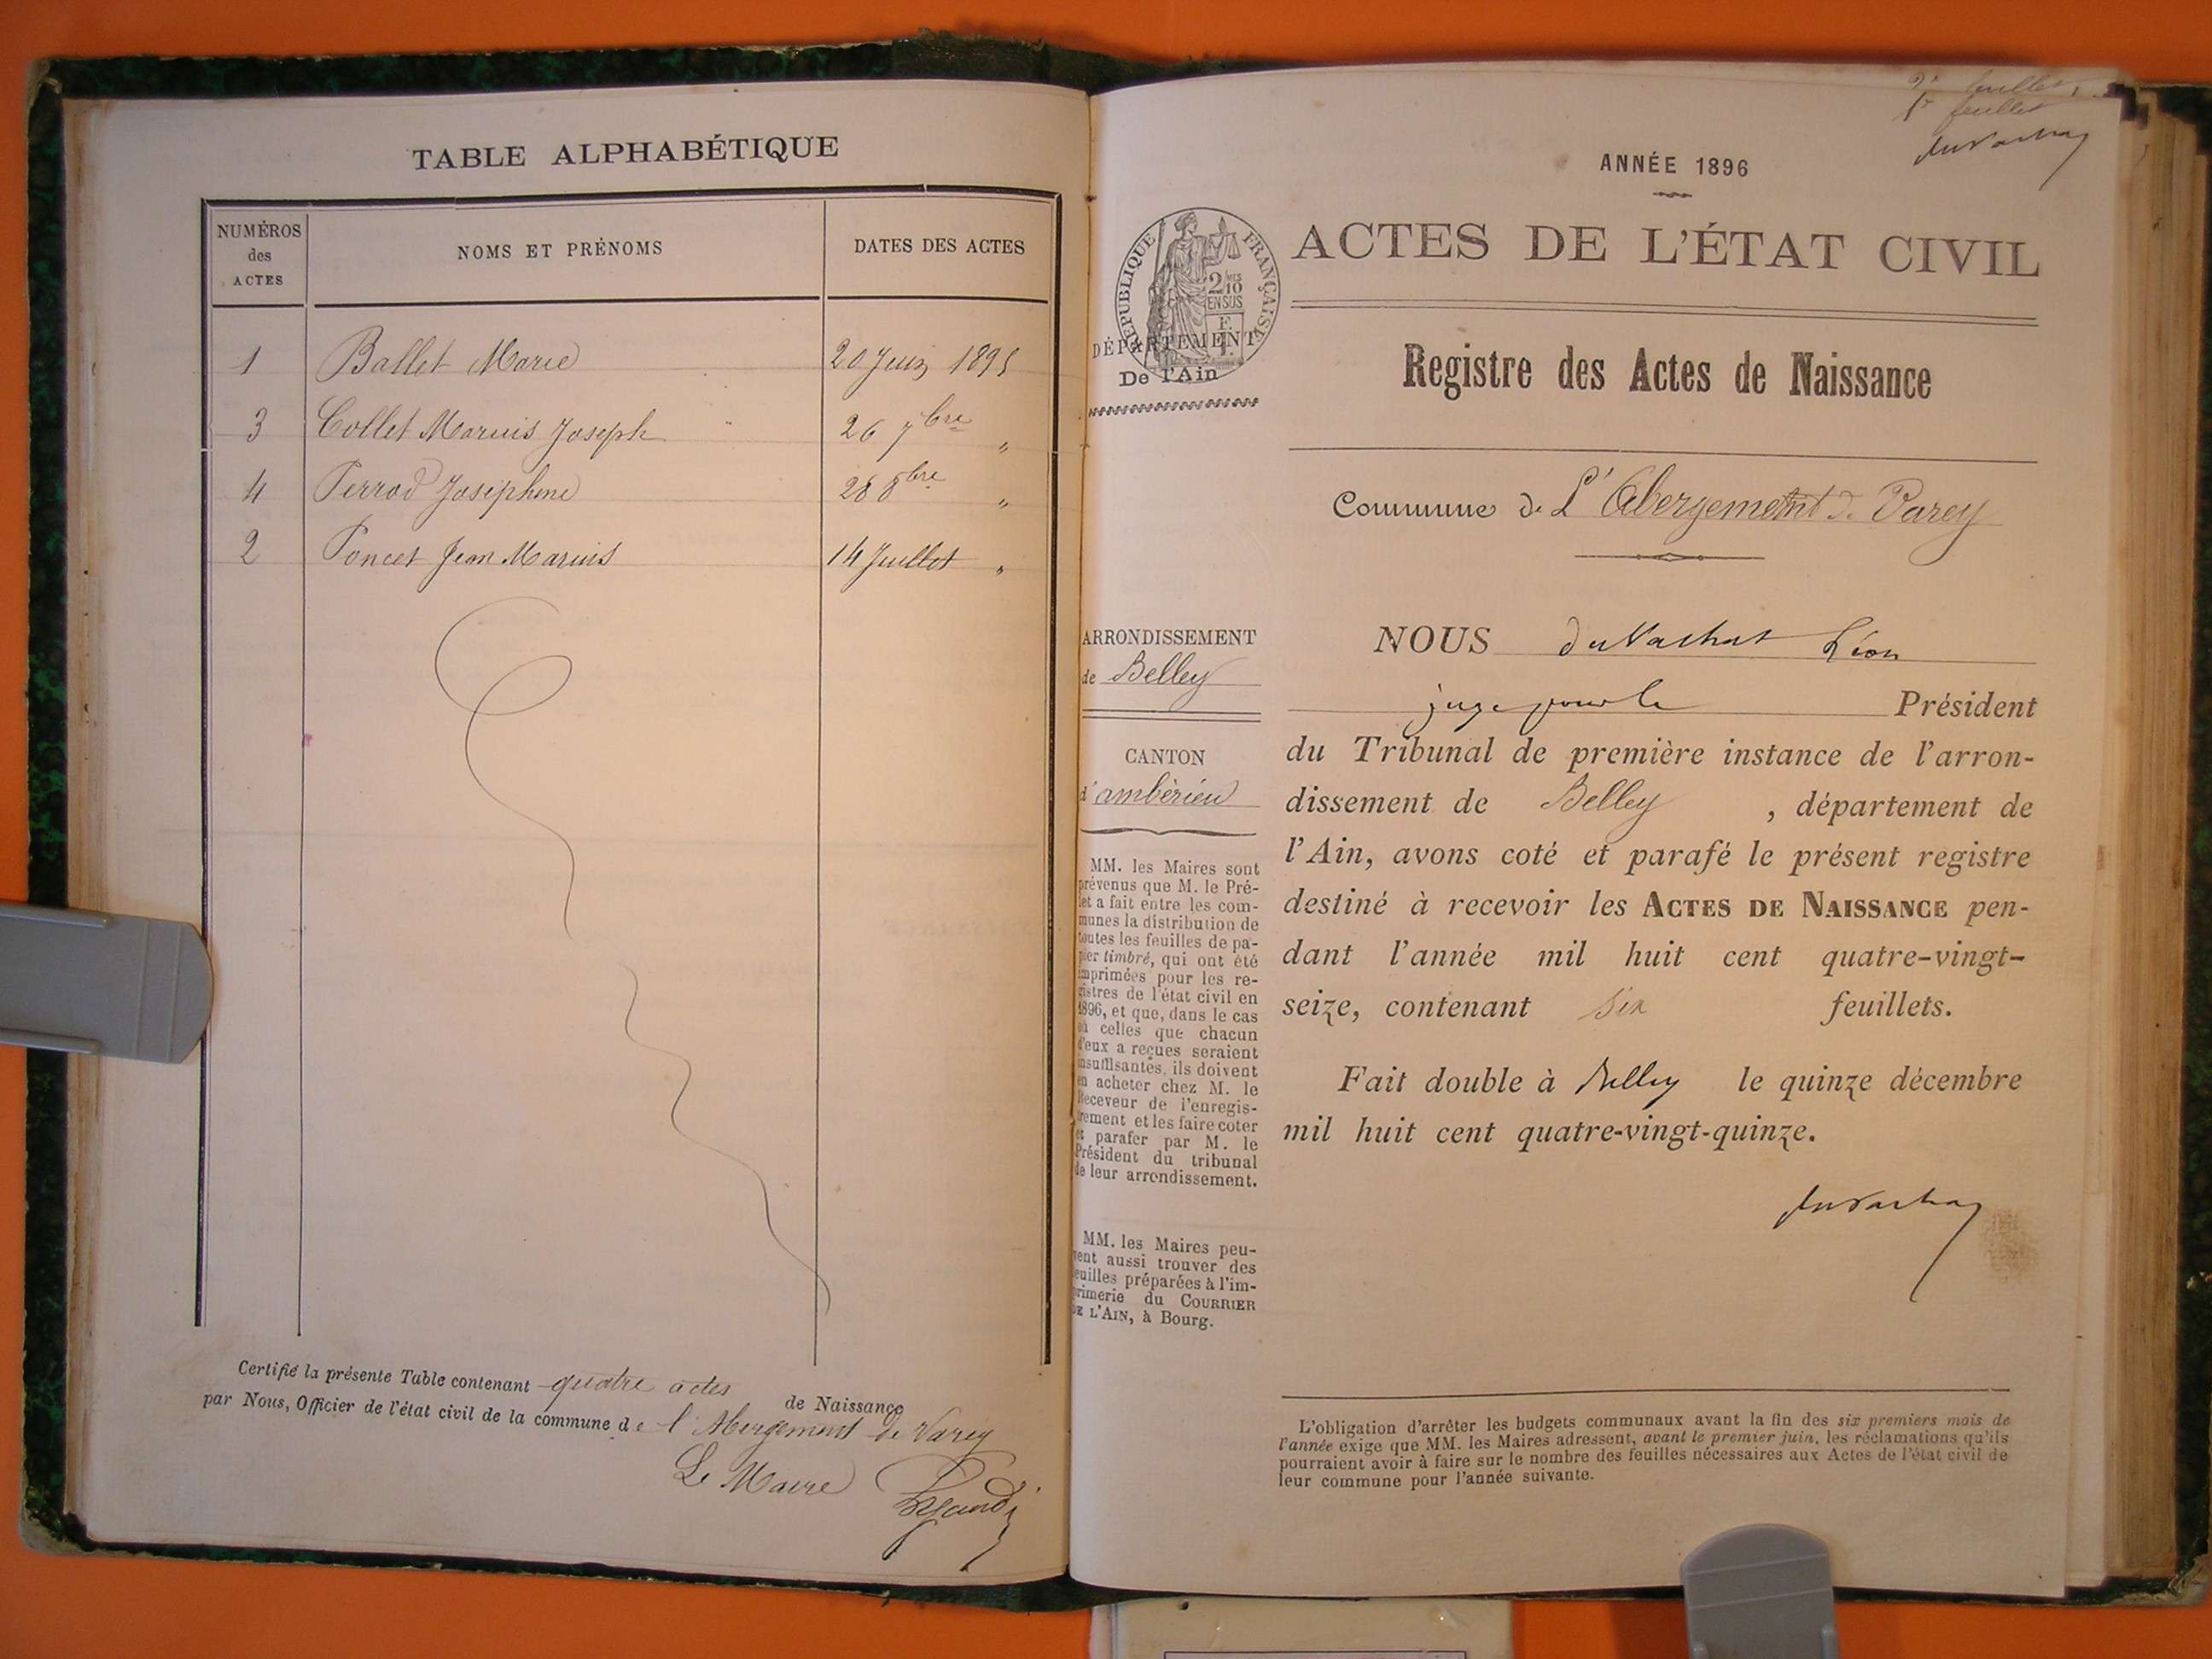 TABLE ALPHABÉTIQUE
NUMÉROS
des
ACTES
NOMS ET PRÉNOMS
DATES DES ACTES
1 Ballet Marie 20 Juin 1895
3 Collet Marius Joseph 26 7bre "
4 Perrod Joséphine 28 8bre "
2 Poncet Jean Marius 14 Juillet "
Certifié la présente Table contenant quatre actes de Naissance
par Nous, Officier de l'état civil de la commune de l'Abergement de Varey
Le Maire
2e feuillet
1r feuillet
duVachat
ANNÉE 1896
RÉPUBLIQUE FRANÇAISE
2/10 MES
EN SUS
DÉPARTEMENT
De l'Ain
ACTES DE L'ÉTAT CIVIL
Registre des Actes de Naissance
Commune de L'Abergement de Varey
ARRONDISSEMENT
de Belley
CANTON
d'ambérieu
MM. les Maires sont
prévenus que M. le Pré-
fet a fait entre les com-
munes la distribution de
toutes les feuilles de pa-
pier timbré, qui ont été
imprimées pour les re-
gistres de l'état civil en
1896, et que, dans le cas
où celles que chacun
d'eux a reçues seraient
insuffisantes, ils doivent
en acheter chez M. le
Receveur de l'enregis-
trement et les faire coter
et parafer par M. le
Président du tribunal
de leur arrondissement.
MM. les Maires peu-
vent aussi trouver des
feuilles préparées à l'im-
primerie du COURRIER
DE L'AIN, à Bourg.
NOUS duVachat Léon
juge pour le Président
du Tribunal de première instance de l'arron-
dissement de Belley , département de
l'Ain, avons coté et parafé le présent registre
destiné à recevoir les ACTES DE NAISSANCE pen-
dant l'année mil huit cent quatre-vingt-
seize, contenant six feuillets.
Fait double à Belley le quinze décembre
mil huit cent quatre-vingt-quinze.
duVachat
L'obligation d'arrêter les budgets communaux avant la fin des six premiers mois de
l'année exige que MM. les Maires adressent, avant le premier juin, les réclamations qu'ils
pourraient avoir à faire sur le nombre des feuilles nécessaires aux Actes de l'état civil de
leur commune pour l'année suivante.